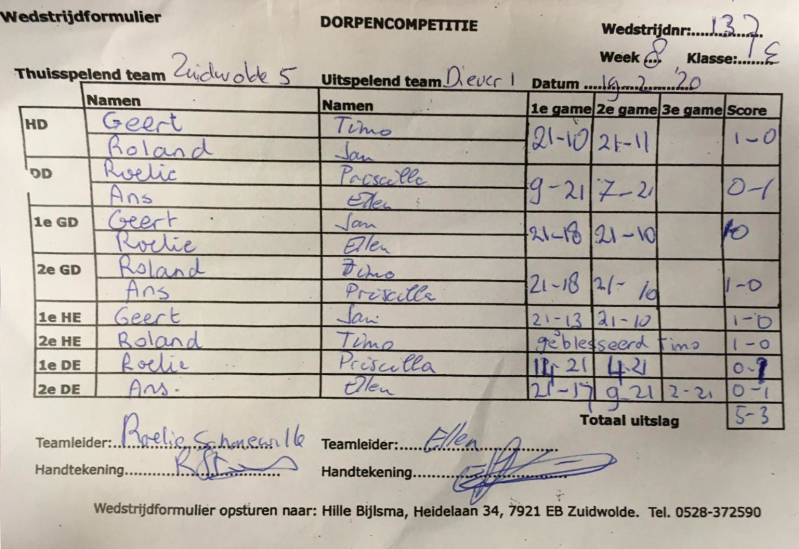 Wedstrijdformulier DORPENCOMPETITIE Wedstrijdnr:......137
Week 8 Klasse:....1E
Thuisspelend team Zuidwolde 5 Uitspelend team Diever 1 Datum ....19-2-'20
Namen Namen 1e game 2e game 3e game Score
HD Geert Timo 21-10 21-11 1-0
Roland Jan
DD Roelie Priscilla 9-21 7-21 0-1
Ans Ellen
1e GD Geert Jan 21-18 21-10 1 0
Roelie Ellen
2e GD Roland Timo 21-18 21-10 1-0
Ans Priscilla
1e HE Geert Jan 21-13 21-10 1-0
2e HE Roland Timo geblesseerd Timo 1-0
1e DE Roelie Priscilla 14-21 4-21 0-1
2e DE Ans. Ellen 21-17 9-21 2-21 0-1
Totaal uitslag 5-3
Teamleider: Roelie Schonewille Teamleider: Ellen
Handtekening Handtekening
Wedstrijdformulier opsturen naar: Hille Bijlsma, Heidelaan 34, 7921 EB Zuidwolde. Tel. 0528-372590